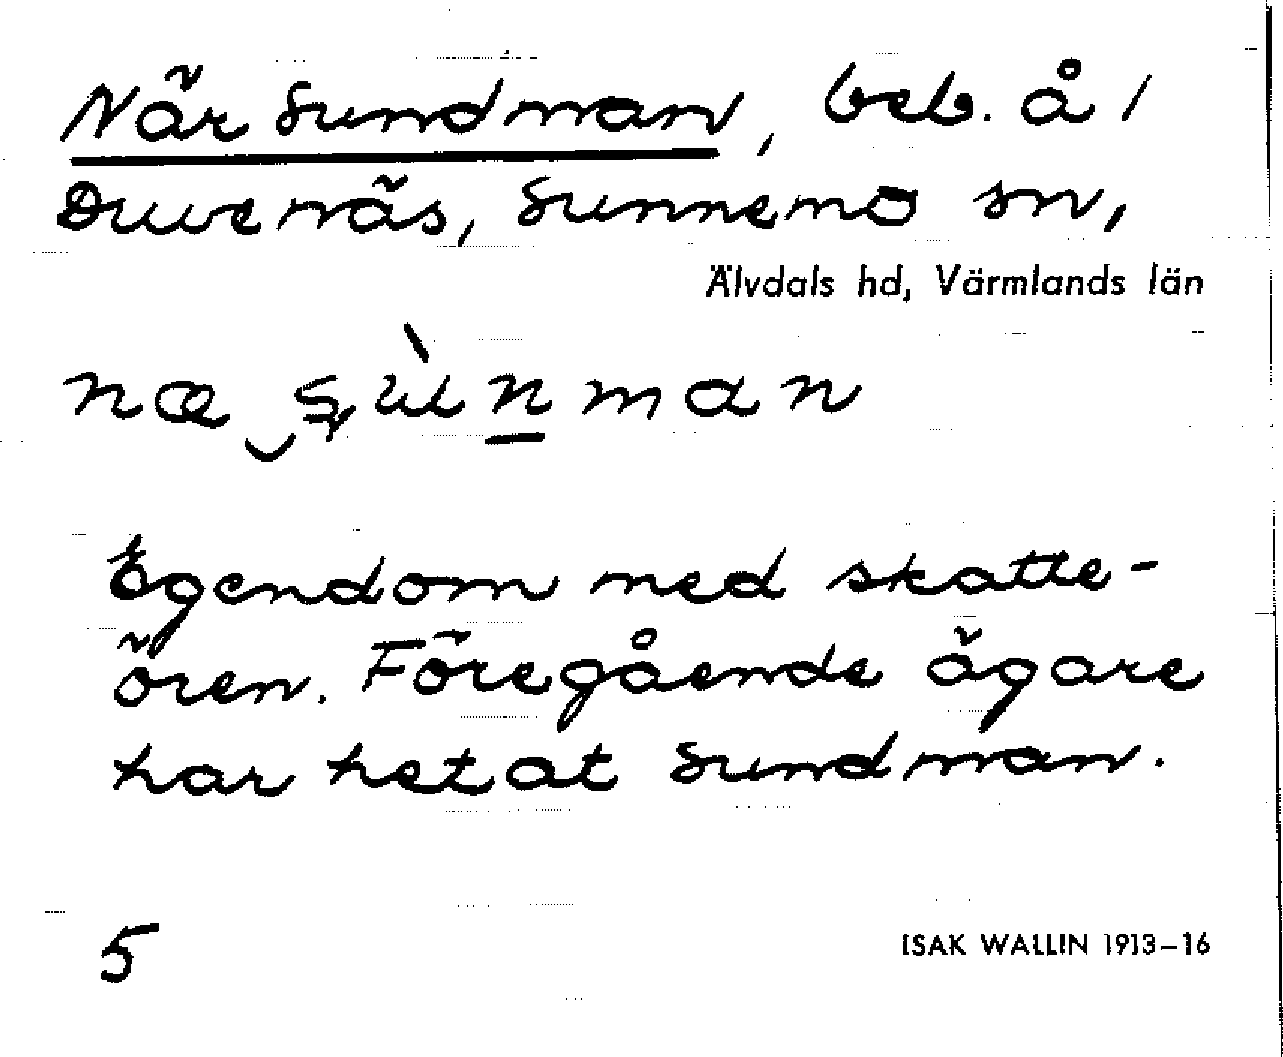 När Sundman, beb. å 1
Duvenäs, Sunnemo sn,
Älvdals hd, Värmlands län
Egendom med skatte-
ören. Föregående ägare
har hetat Sundman.
5
ISAK WALLIN 1913–16